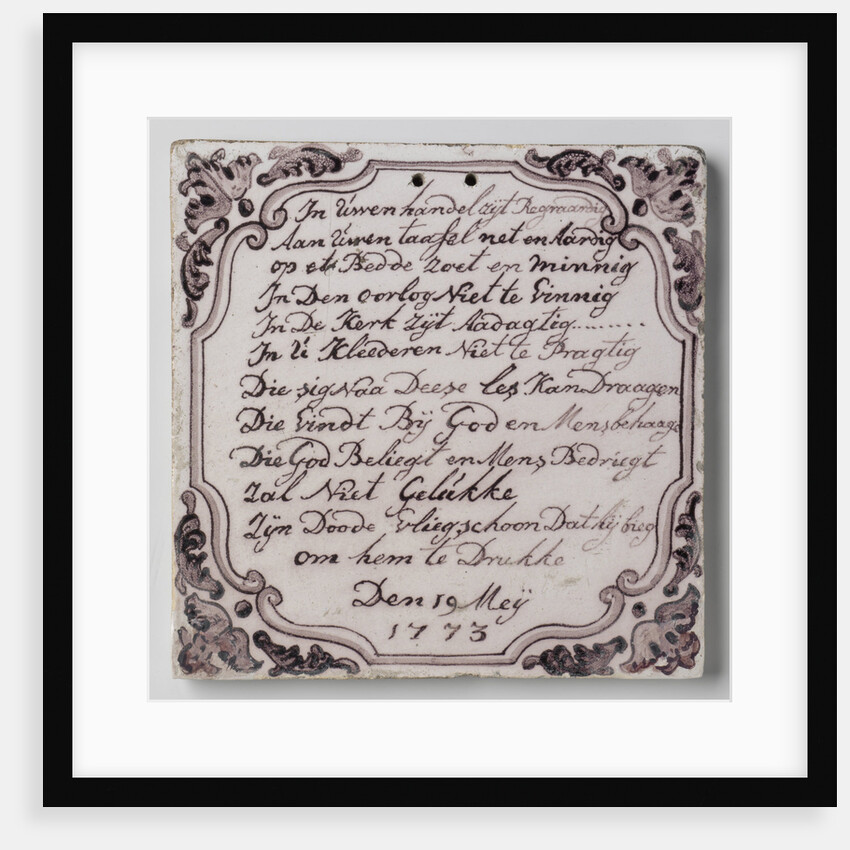 In Uwen handel zyt Regvaardig
Aan Uwen taafel net en Aardig
op et Bedde zoet en minnig
In Den oorlog Niet te Vinnig
In De Kerk Zyt Aadagtig.........
In U Kleederen Niet te Pragtig
Die sig Naa Deese les Kan Draagen
Die Vindt Bÿ God en Mens behaage
Die God Beliegt en Mens Bedriegt
Zal Niet Gelukke
Zÿn Doode Vlieg, schoon Dat hÿ
om hem te Drukke
Den 19 Meÿ
1773